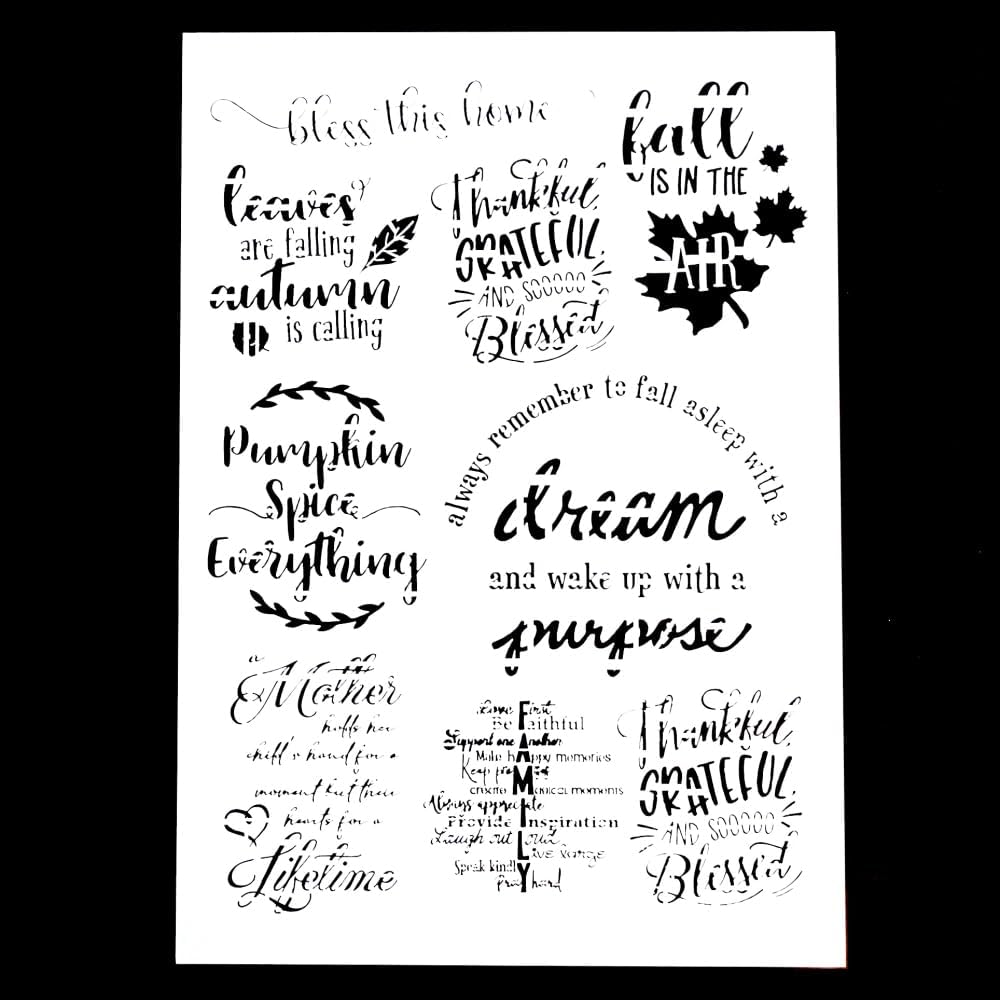 bless this home
fall
IS IN THE
AIR
leaves
are falling
autumn
is calling
Thankful,
GRATEFUL,
AND SOOOOO
Blessed
Pumpkin
Spice
Everything
always remember to fall asleep with a
dream
and wake up with a
purpose
a
Mother
holds her
child's hand for a
moment but their
hearts for a
Lifetime
Love First
Be Faithful
Support one Another
Make happy memories
Keep promises
create Magical moments
Always appreciate
Provide Inspiration
Laugh out loud
Live large
Speak kindly
Pray hard
FAMILY
Thankful,
GRATEFUL,
AND SOOOOO
Blessed